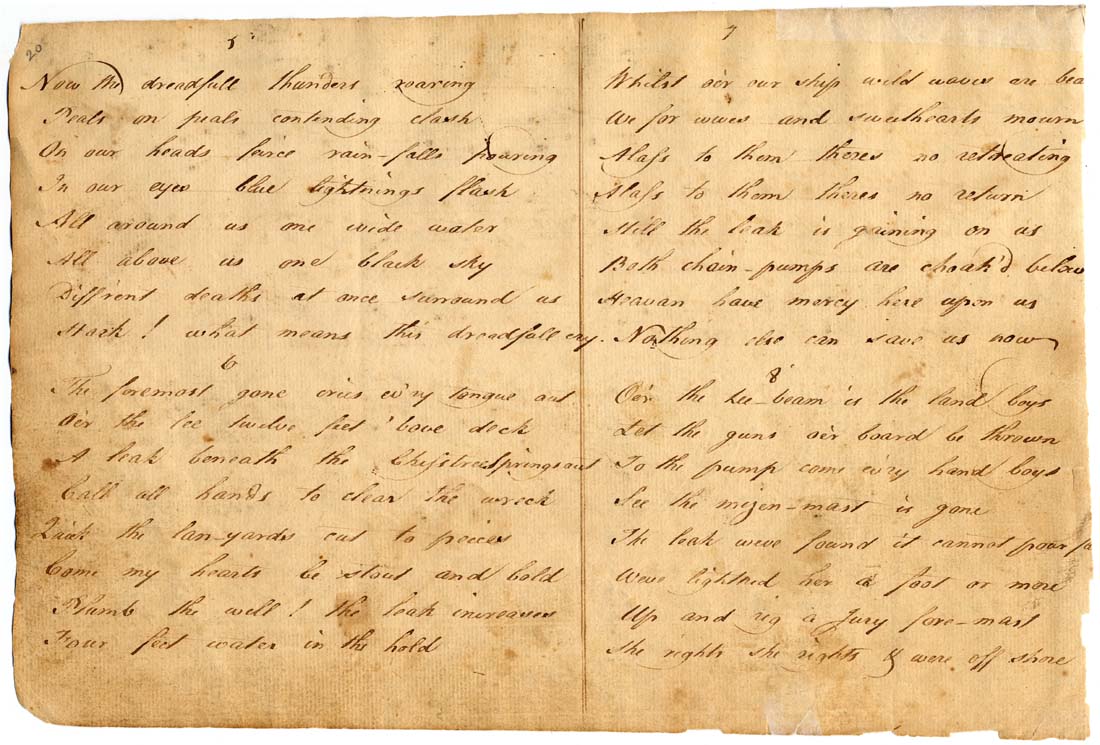 20
5
Now the dreadfull thunders roaring
Peals on peals contending clash
On our heads feirce rain-falls pouring
In our eyes blue lightnings flash
All around us one wide water
All above us one black sky
Diffrent deaths at once surround us
Hark! what means this dreadfull cry.
6
The foremost gone cries ev'ry tongue out
O'er the lee twelve feet 'bove deck
A leak beneath the Chesstree springs out
Call all hands to clear the wreck
Quick the lan-yards cut to peices
Come my hearts be stout and bold
Plumb the well! the leak increases
Four feet water in the hold
7
Whilst o'er our ship wild waves are bea
We for wives and sweethearts mourn
Alass to them theres no retreating
Alass to them theres no return
Still the leak is gaining on us
Both chain-pumps are choak'd below
Heavan have mercy here upon us
Nothing else can save us now
8
O'er the Lee-beam is the land boys
Let the guns o'er board be thrown
To the pump come ev'ry hand boys
See the mizen-mast is gone
The leak weve found it cannot pour fa
Weve lightned her a foot or more
Up and rig a Jury fore-mast
She rights she rights & were off shore